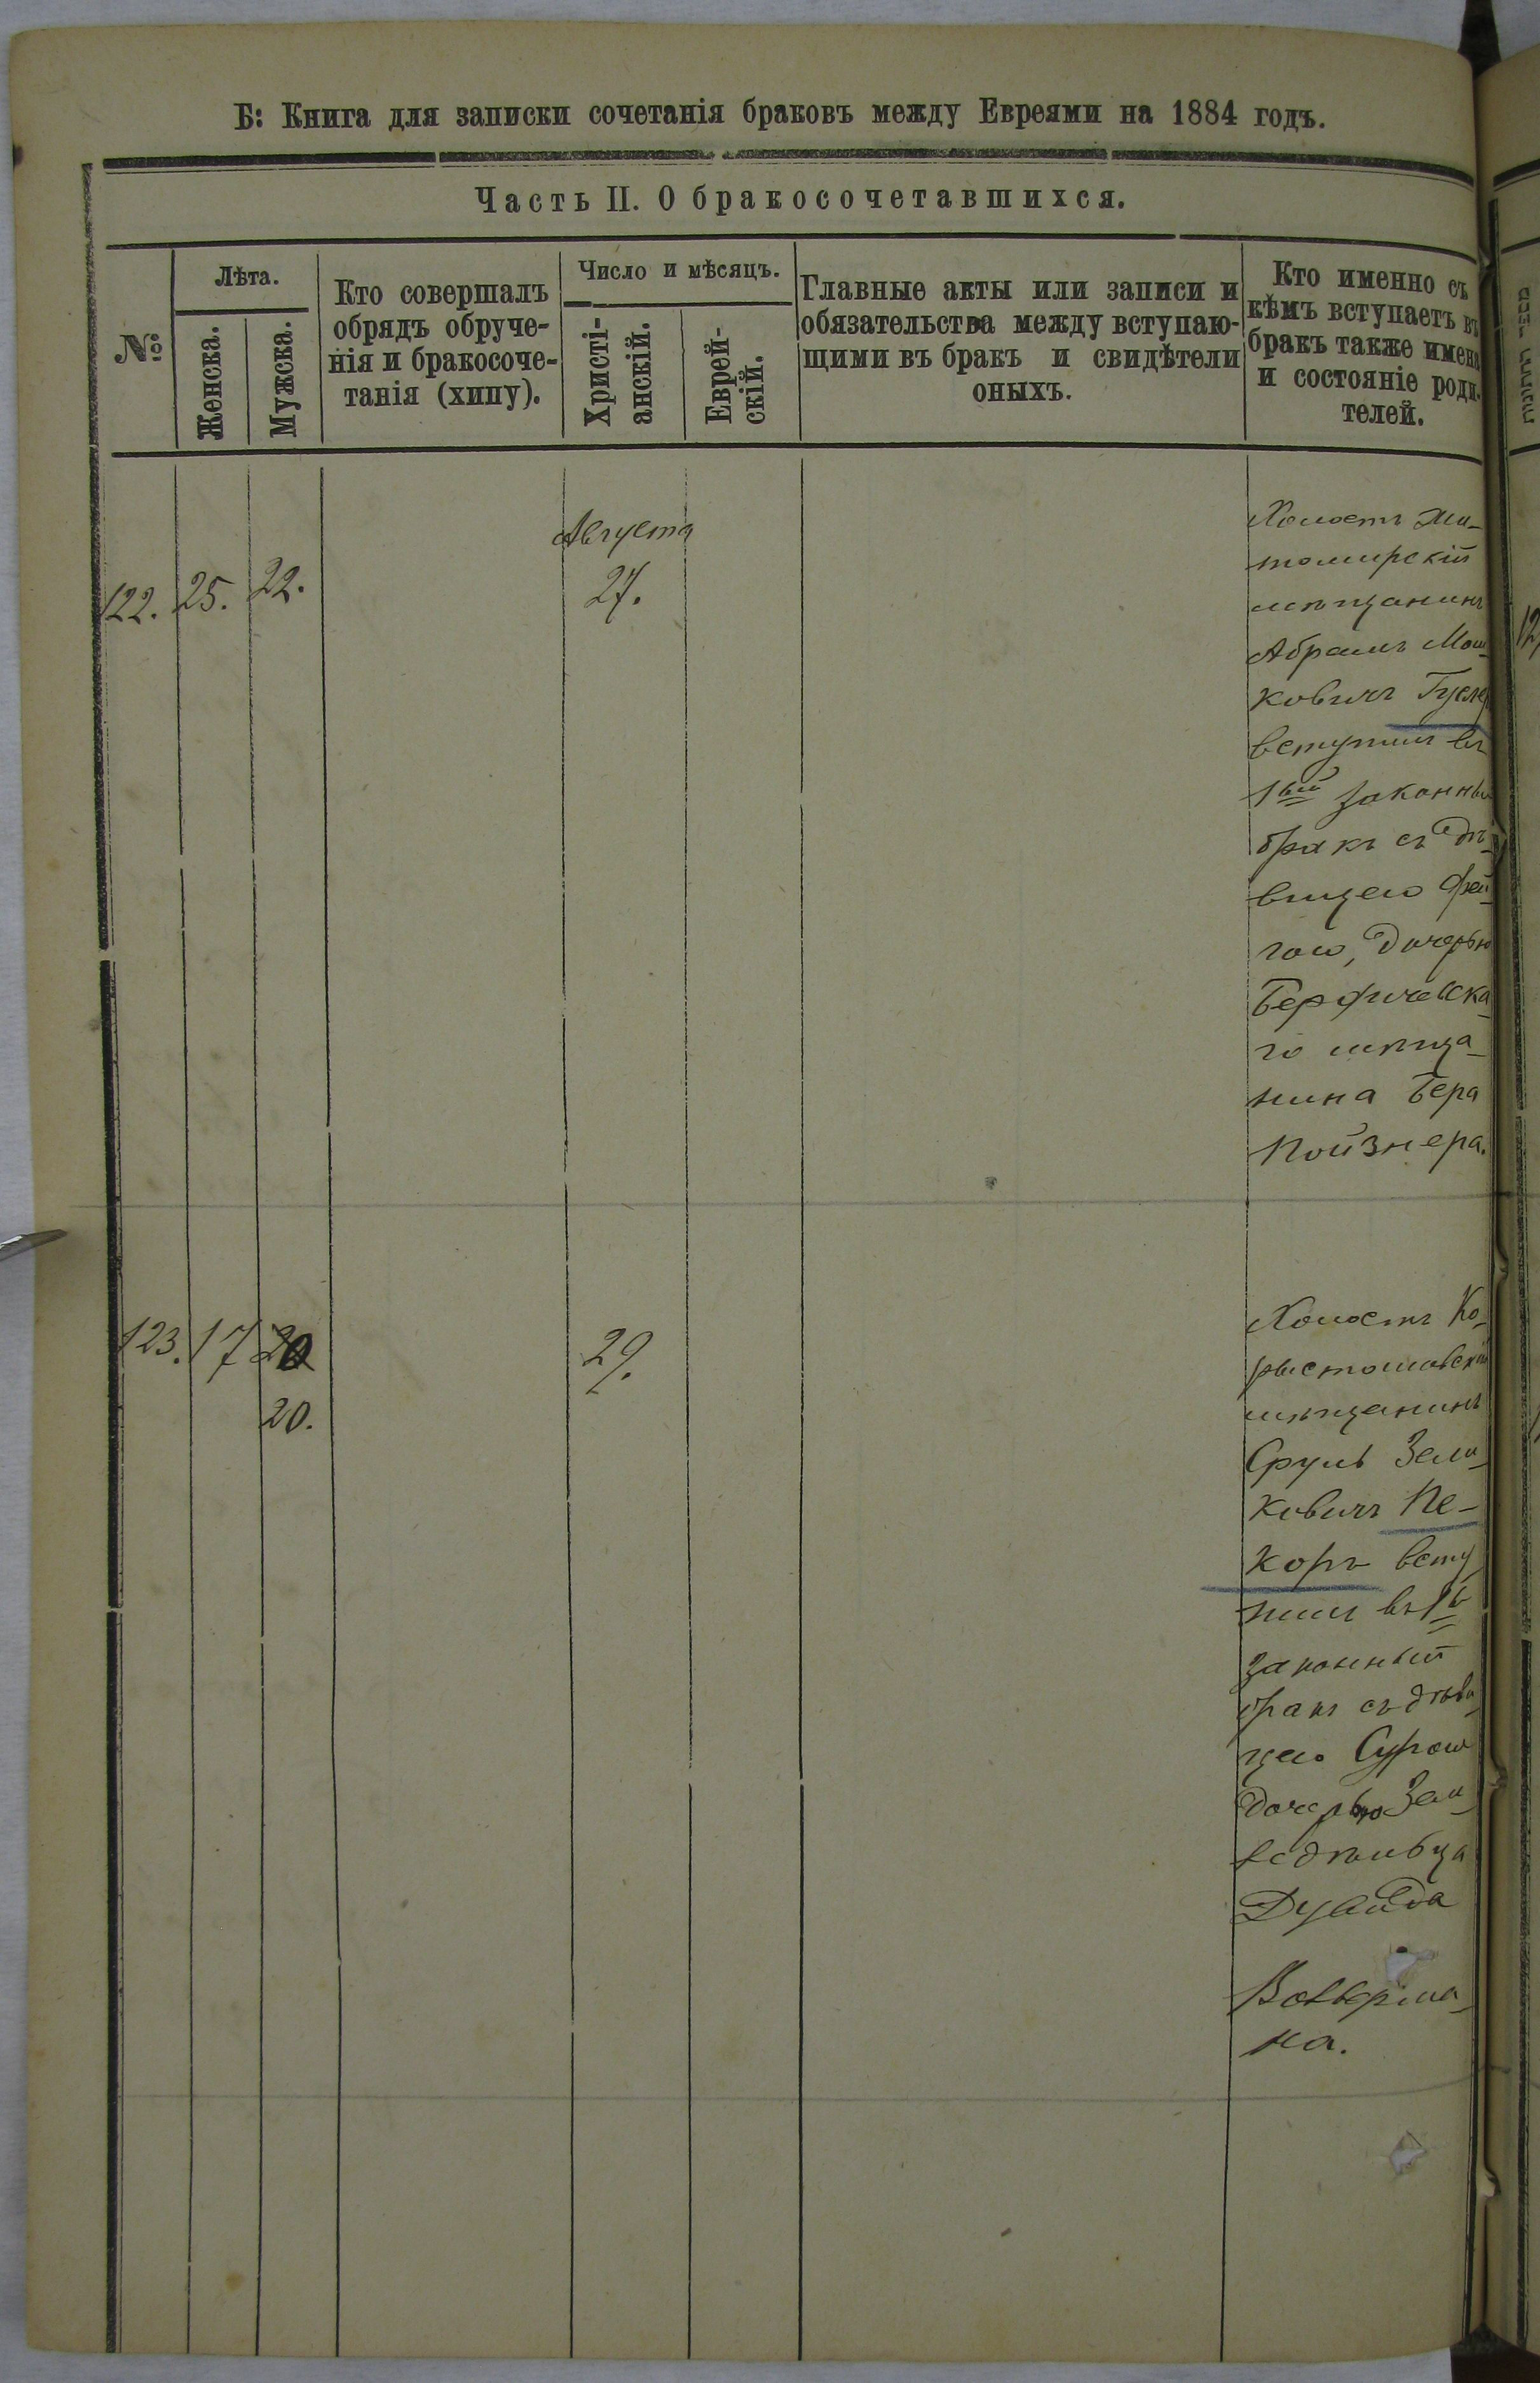 Б: Книга для записки сочетанія браковъ между Евреями на 1884 годъ.
Часть II. О бракосочетавшихся.
№
Лѣта.
Женска.
Мужска.
Кто совершалъ
обрядъ обруче-
нія и бракосоче-
танія (хипу).
Число и мѣсяцъ.
Христі-
анскій.
Еврей-
скій.
Главные акты или записи и
обязательства между вступаю-
щими въ бракъ и свидѣтели
оныхъ.
Кто именно съ
кѣмъ вступаетъ въ
бракъ также имена
и состояніе роди-
телей.
122. 25. 22.
Августа
27.
Холостъ Жи-
томирскій
мѣщанинъ
Абрамъ Мош-
ковичъ
вступилъ въ
1ый законный
бракъ съ дѣ-
вицею Фей-
гою, дочерью
Бердичевска-
го мѣща-
нина Бера
Пойзнера.
123. 17 20
20.
29.
Холостъ Ко-
ростышовскій
мѣщанинъ
Сруль Зель-
ковичъ Пе-
коръ всту-
пилъ въ 1й
законный
бракъ съ дѣви-
цею Сурою
дочерью Зем-
ледѣльца
Дувида
на.